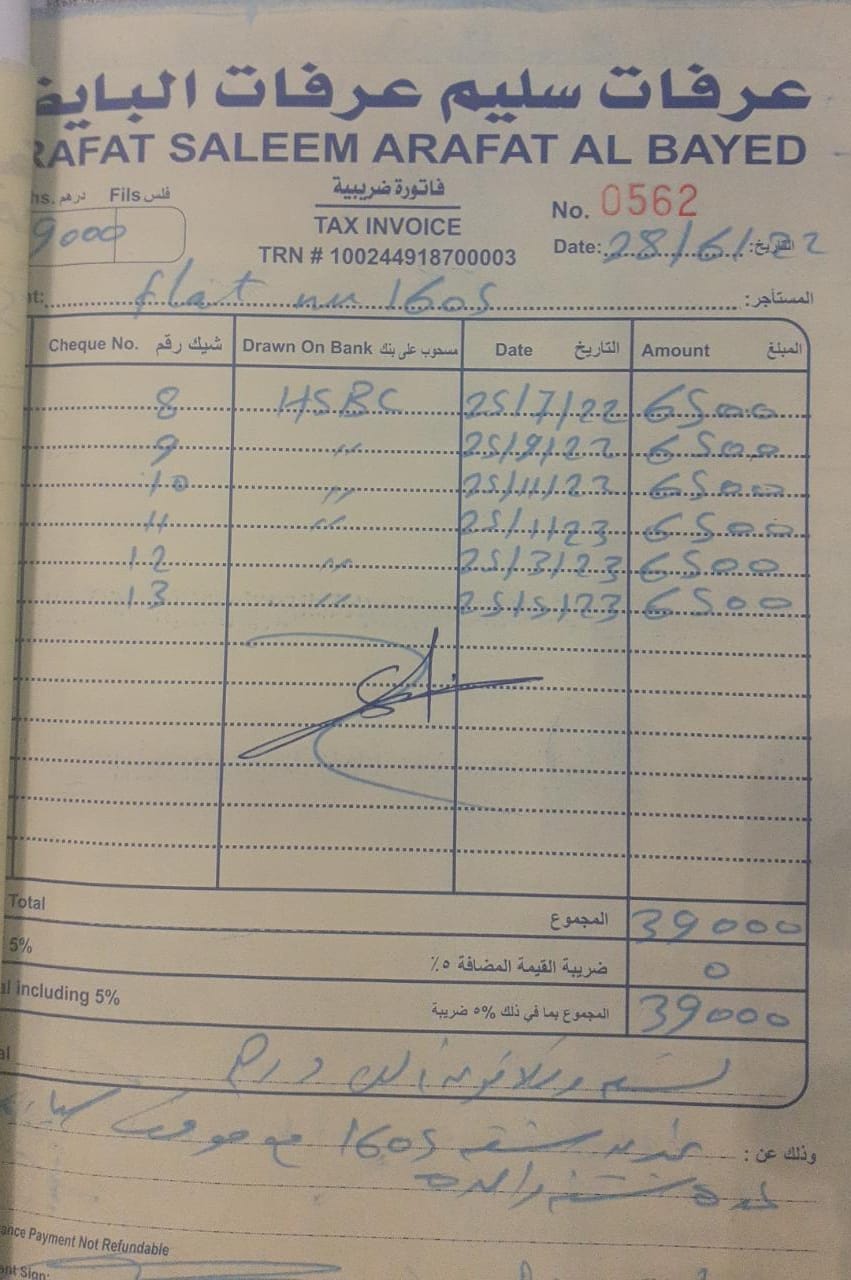 عرفات سليم عرفات البايض
RAFAT SALEEM ARAFAT AL BAYED
hs. درهم Fils فلس
فاتورة ضريبية
TAX INVOICE
TRN # 100244918700003
No. 0562
9000
Date: 28/6/22 التاريخ:
nt: flat nu 1605 المستأجر:
Cheque No. شيك رقم Drawn On Bank مسحوب على بنك Date التاريخ Amount المبلغ
8 HSBC 25/7/22 6500
9 " 25/9/22 6500
10 " 25/11/22 6500
11 " 25/1/23 6500
12 " 25/3/23 6500
13 " 25/5/23 6500
Total المجموع 39000
5% ضريبة القيمة المضافة ٥٪ 0
al including 5% المجموع بما في ذلك 5% ضريبة 39000
al تسعة وثلاثون ألف درهم
وذلك عن: تجديد شقة 1605 مع موقف سيارة
لمدة سنة واحدة
ance Payment Not Refundable
ant Sign: